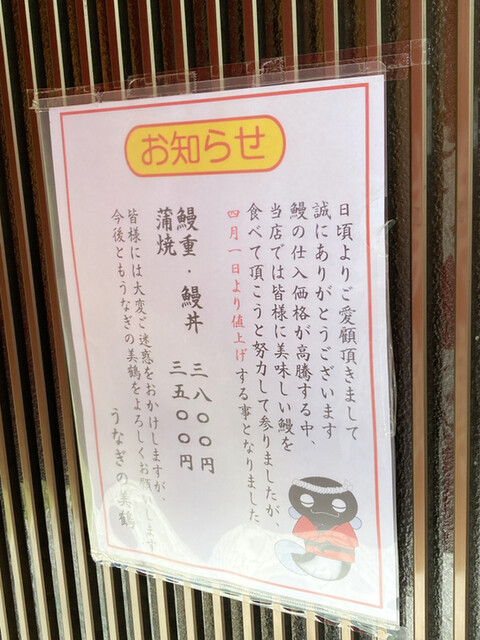 お知らせ
日頃よりご愛顧頂きまして
誠にありがとうございます
鰻の仕入価格が高騰する中、
当店では皆様に美味しい鰻を
食べて頂こうと努力して参りましたが、
四月一日より値上げする事となりました
鰻重・鰻丼 三八〇〇円
蒲焼 三五〇〇円
皆様には大変ご迷惑をおかけしますが、
今後ともうなぎの美鶴をよろしくお願いします
うなぎの美鶴